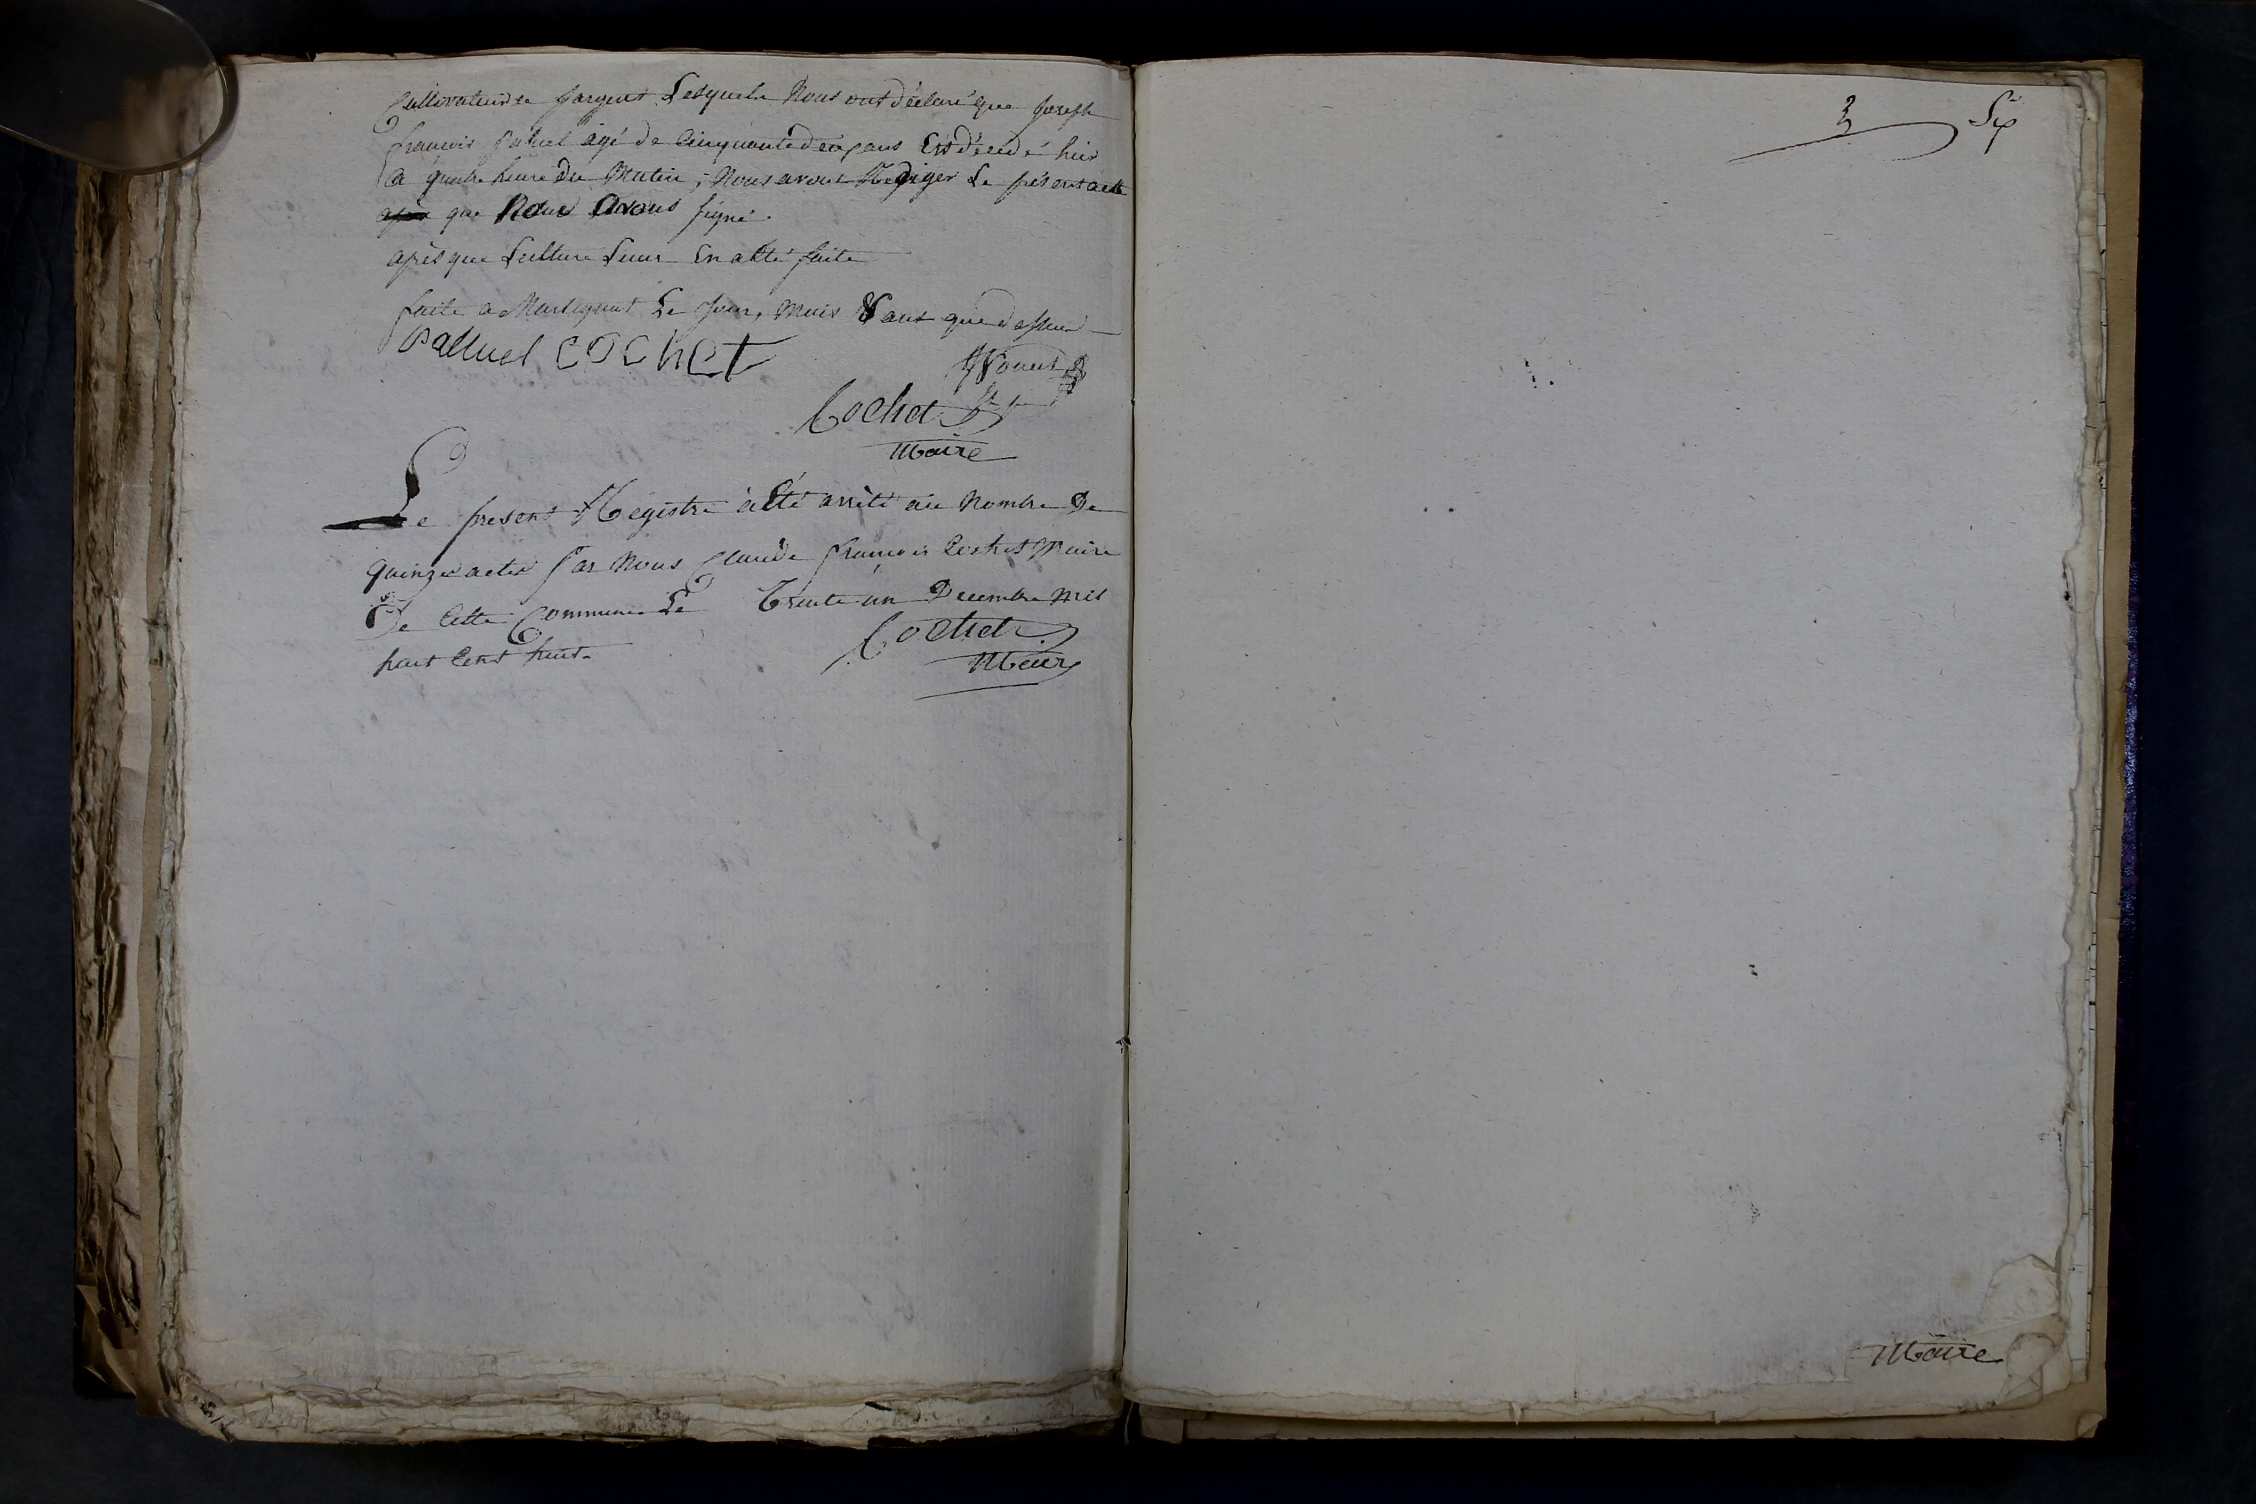 Cultivateur de Sargens Lesquels Nous ont déclaré que Joseph
françois Palluel âgé de Cinquante deux ans Est décédé hier
à quatre heure du Matin ; Nous avons Rediger Le présent acte
que Nous Avons signé.
après que Lecture Leur En a Eté faite
faite à Martignat Le Jour, Mois & ans que dessus
Palluel COCHET
Cochet
Maire
Le present Régistre à Eté arrêté au Nombre De
quinze actes par Nous Claude françois Cochet Maire
De Cette Commune Le Trente un Decembre Mil
huit Cent huit.
Cochet
Maire
3 Six
Maire